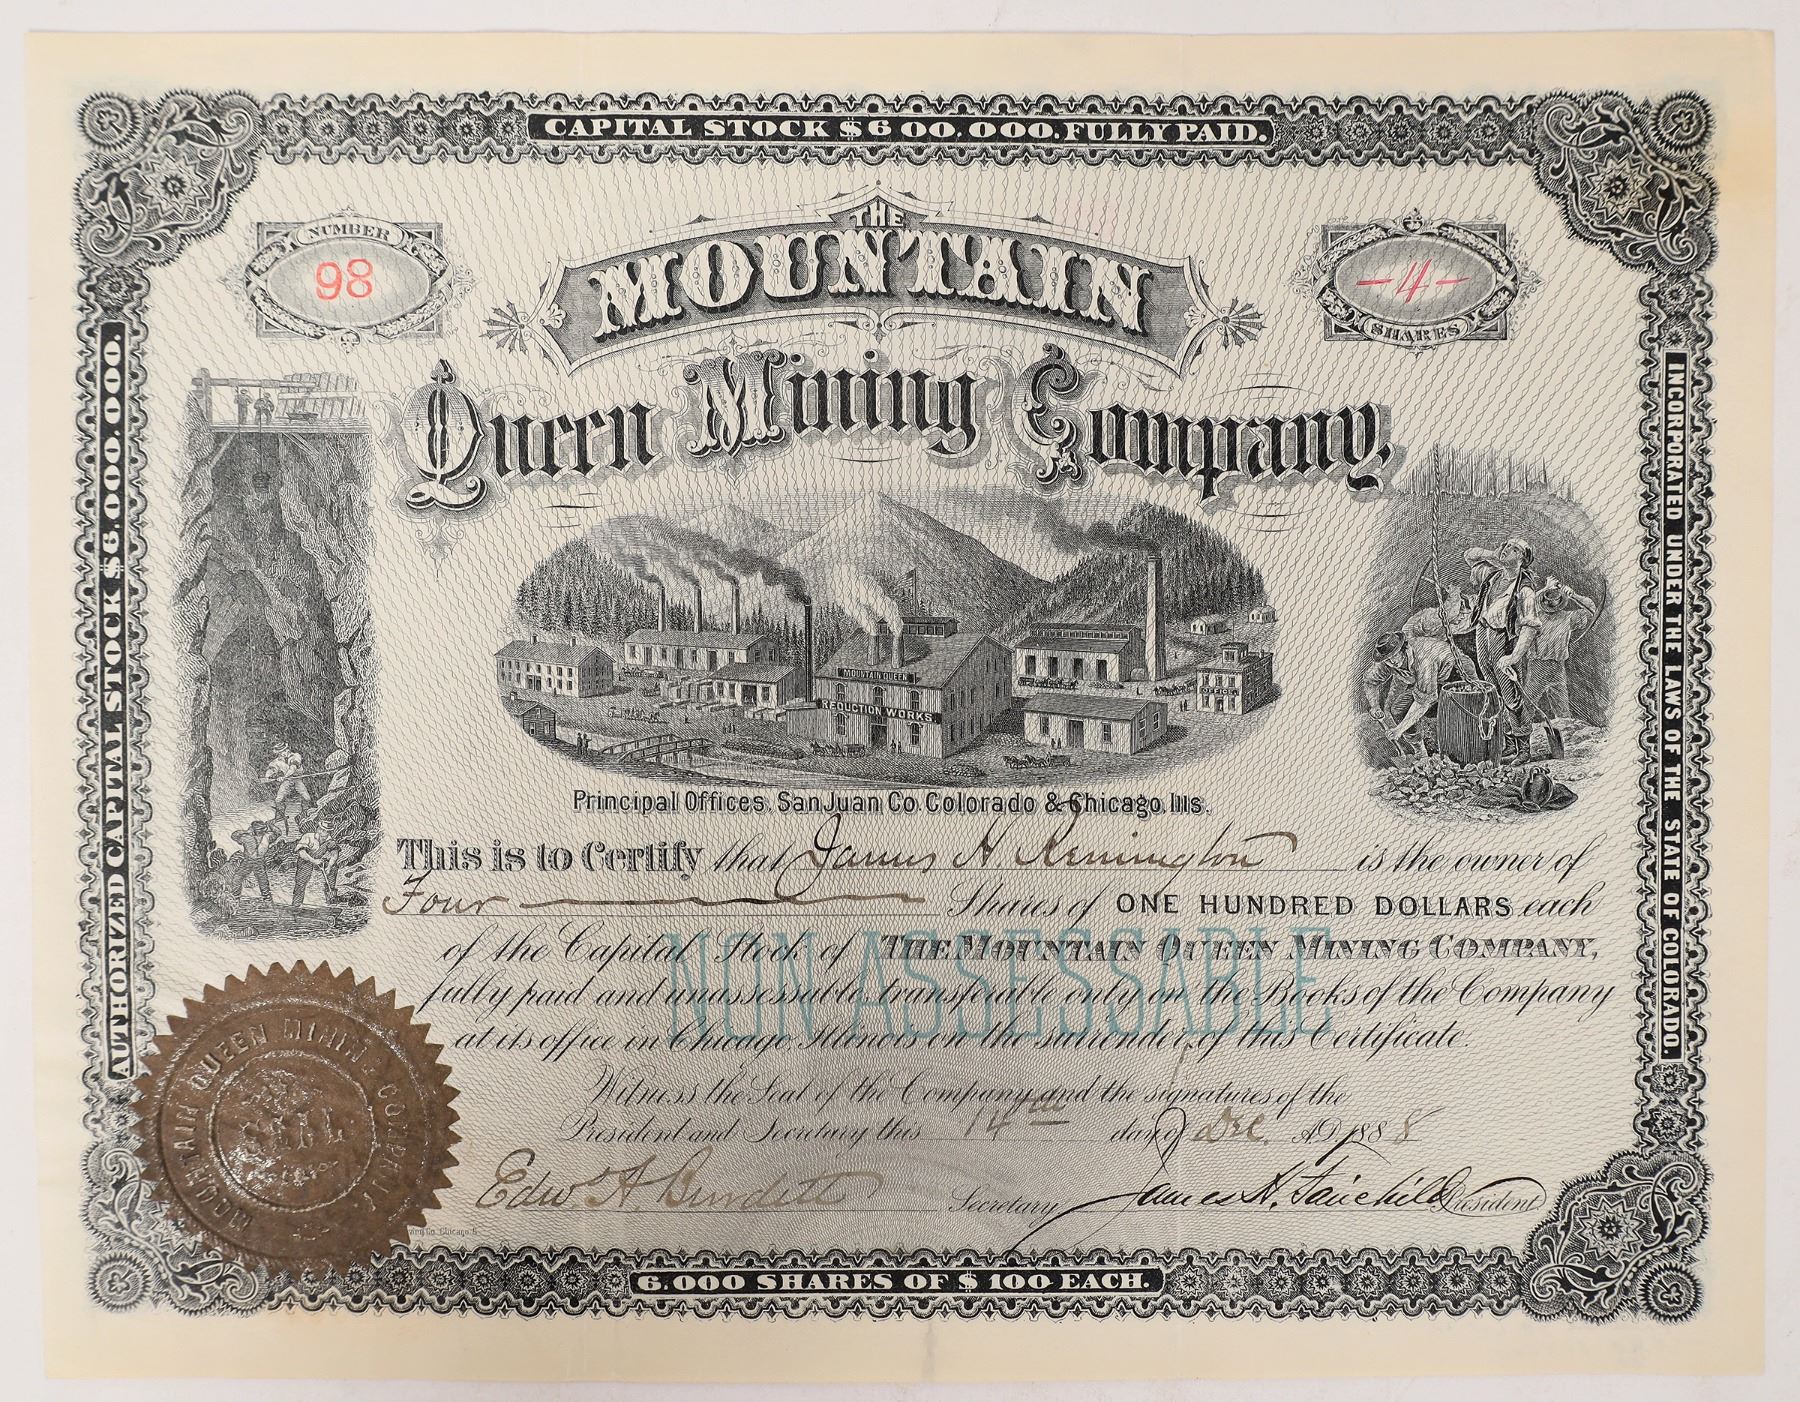 CAPITAL STOCK $600.000. FULLY PAID.
NUMBER
98
THE
MOUNTAIN
-4-
SHARES
Queen Mining Company.
AUTHORIZED CAPITAL STOCK $6.000.000.
INCORPORATED UNDER THE LAWS OF THE STATE OF COLORADO.
MOUNTAIN QUEEN
REDUCTION WORKS.
OFFICE
Principal Offices, San Juan Co. Colorado & Chicago, Ills.
This is to Certify that James H. Remington is the owner of
Four Shares of ONE HUNDRED DOLLARS each
of the Capital Stock of THE MOUNTAIN QUEEN MINING COMPANY,
NON ASSESSABLE
fully paid and unassessable transferable only on the Books of the Company
at its office in Chicago, Illinois on the surrender of this Certificate.
Witness the Seal of the Company and the signatures of the
President and Secretary this 14th day of Dec. A.D. 1888
Edw. A. Burdett Secretary James H. Fairchild President
MOUNTAIN QUEEN MINING COMPANY
SEAL
Co. Chicago.
6.000 SHARES OF $100 EACH.